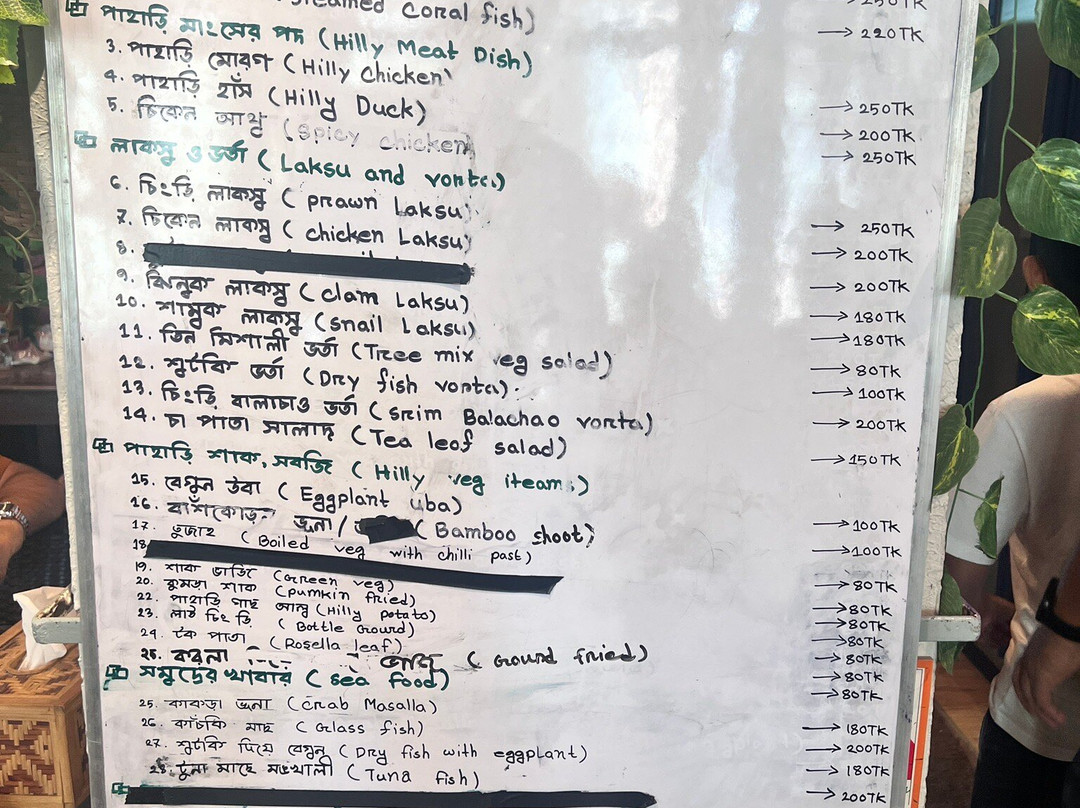 Steamed Coral fish) → 250TK
পাহাড়ি মাংসের পদ (Hilly Meat Dish) → 220TK
3. পাহাড়ি মোরগ (Hilly Chicken)
4. পাহাড়ি হাঁস (Hilly Duck) → 250TK
5. চিকেন (Spicy chicken) → 200TK
লাকসু ও ভর্তা (Laksu and vorta) → 250TK
6. চিংড়ি লাকসু (prawn Laksu)
7. চিকেন লাকসু (chicken Laksu) → 250TK
8. → 200TK
9. ঝিনুক লাকসু (clam Laksu) → 200TK
10. শামুক লাকসু (snail Laksu) → 180TK
11. তিন মিশালী ভর্তা (Tree mix veg salad) → 180TK
12. শুটকি ভর্তা (Dry fish vorta) → 80TK
13. চিংড়ি বালাচাও ভর্তা (srim Balachao vorta) → 100TK
14. চা পাতা সালাদ (Tea leaf salad) → 200TK
পাহাড়ি শাক, সবজি (Hilly veg iteams) → 150TK
15. বেগুন উবা (Eggplant uba)
16. বাঁশকোড়ল ভুনা/ (Bamboo shoot) → 100TK
17. (Boiled veg with chilli past) → 100TK
18
19. শাক ভাজি (Green veg) → 80TK
20. কুমড়া শাক (Pumkin fried) → 80TK
22. পাহাড়ি গাছ আলু (Hilly potato) → 80TK
23. লাউ চিংড়ি (Bottle Gourd) → 80TK
24. টক পাতা (Rosella leaf) → 80TK
25. করলা ভাজি (Gourd fried) → 80TK
সমুদ্রের খাবার (Sea Food) → 80TK
25. কাকড়া ভুনা (Crab Masalla)
26. কাঁচকি মাছ (Glass fish) → 180TK
27. শুটকি দিয়ে বেগুন (Dry fish with eggplant) → 200TK
28. টুনা মাছে (Tuna fish) → 180TK
→ 200TK